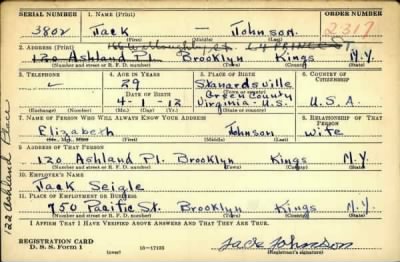 SERIAL NUMBER 1. NAME (Print) ORDER NUMBER
3802 Jack Johnson 2317
2. ADDRESS (Print)
120 Ashland Pl. Brooklyn Kings N.Y.
(Number and street or R. F. D. number) (Town) (County) (State)
3. TELEPHONE 4. AGE IN YEARS 5. PLACE OF BIRTH 6. COUNTRY OF CITIZENSHIP
29 Stanardsville
DATE OF BIRTH (Town or county)
4-1-12 Green County
Virginia-U.S. U.S.A.
(Exchange) (Number) (Mo.) (Day) (Yr.) (State or country)
7. NAME OF PERSON WHO WILL ALWAYS KNOW YOUR ADDRESS 8. RELATIONSHIP OF THAT PERSON
Elizabeth Johnson wife
9. ADDRESS OF THAT PERSON
120 Ashland Pl. Brooklyn Kings N.Y.
(Number and street or R. F. D. number) (Town) (County) (State)
10. EMPLOYER'S NAME
Jack Seigle
11. PLACE OF EMPLOYMENT OR BUSINESS
750 Pacific St. Brooklyn Kings N.Y.
(Number and street or R. F. D. number) (Town) (County) (State)
I AFFIRM THAT I HAVE VERIFIED ABOVE ANSWERS AND THAT THEY ARE TRUE.
REGISTRATION CARD
D. S. S. Form 1 (over) 16-17105 Jack Johnson
(Registrant's signature)
122 Ashland Place